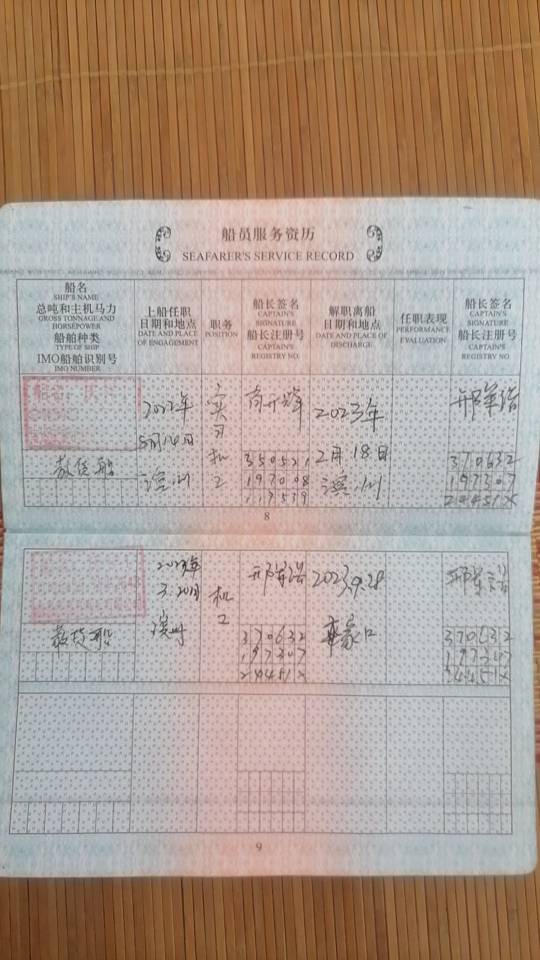 船员服务资历
SEAFARER'S SERVICE RECORD
船名
SHIP'S NAME
总吨和主机马力
GROSS TONNAGE AND
HORSEPOWER
船舶种类
TYPE OF SHIP
IMO船舶识别号
上船任职
日期和地点
DATE AND PLACE
OF ENGAGEMENT
职务
POSITION
船长签名
CAPTAIN'S
SIGNATURE
船长注册号
CAPTAIN'S
REGISTRY NO.
解职离船
日期和地点
DATE AND PLACE OF
DISCHARGE
任职表现
PERFORMANCE
EVALUATION
船长签名
CAPTAIN'S
SIGNATURE
船长注册号
CAPTAIN'S
REGISTRY NO.
船名
散货船
2022年
5月14日
滨州
实习机工
350521
197008
2023年
2月18日
滨州
370632
197307
8
散货船
2023年
3.20日
滨州
机工
370632
197307
2023.9.28
370632
197307
9